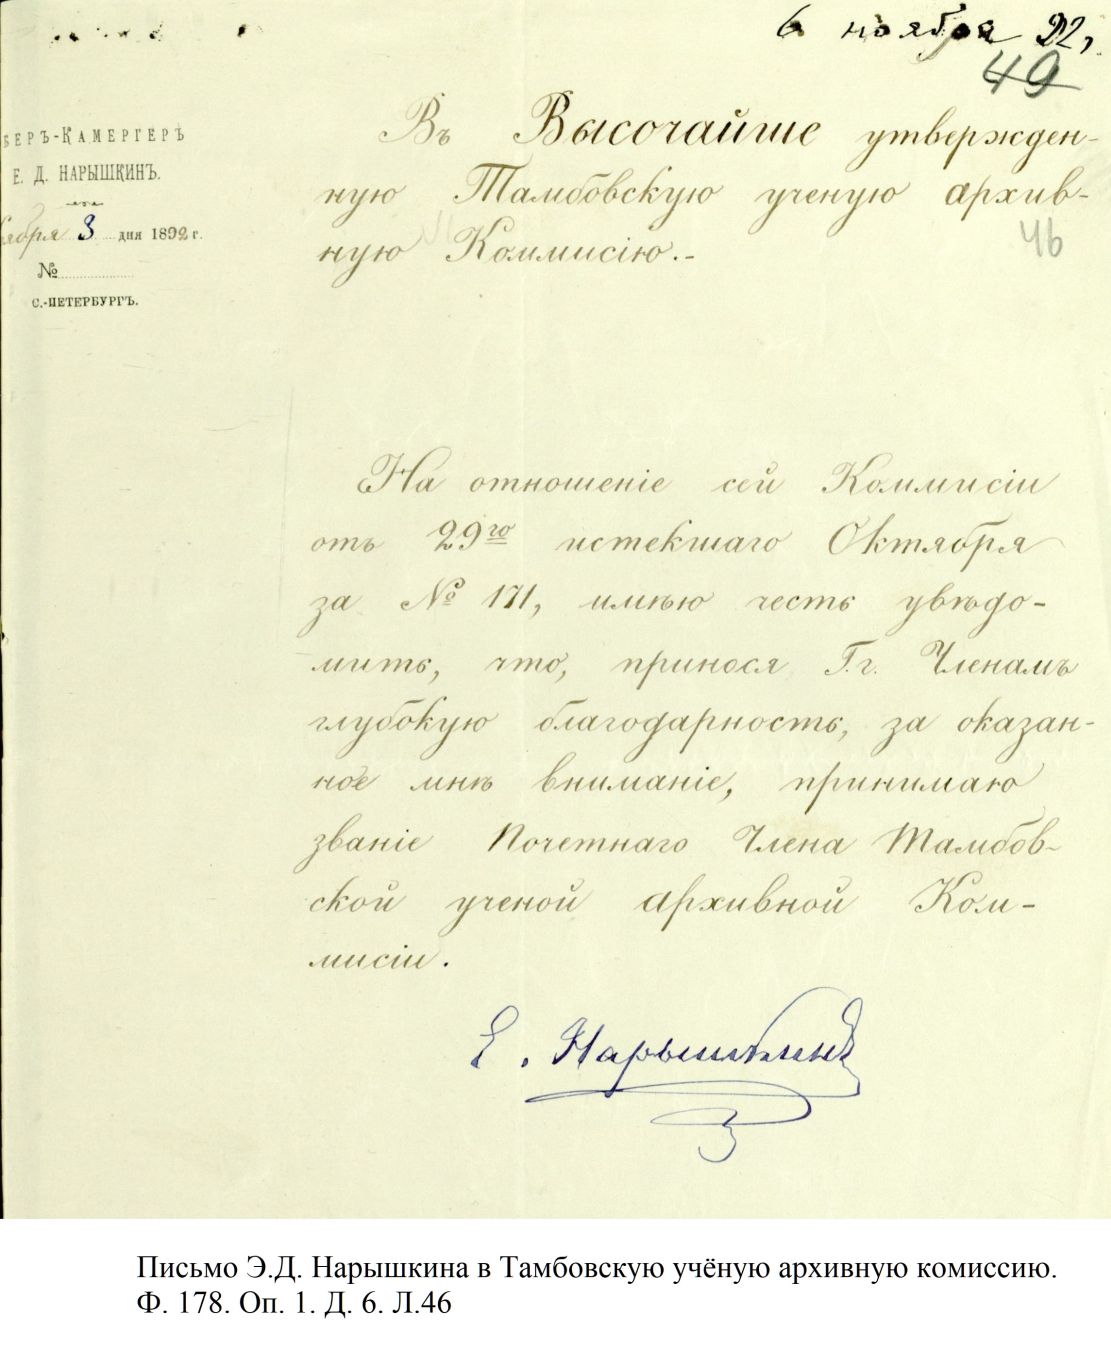 6 ноября 92,
49
БЕРЪ-КАМЕРГЕРЪ
Е. Д. НАРЫШКИНЪ.
ября 3 дня 1892 г.
№
С.-ПЕТЕРБУРГЪ.
Въ Высочайше утвержден-
ную Тамбовскую ученую архив-
ную Коммисію.-
46
На отношеніе сей Коммисіи
отъ 29го истекшаго Октября
за № 171, имѣю честь увѣдо-
мить, что, принося Г.г. Членамъ
глубокую благодарность, за оказан-
ное мнѣ вниманіе, принимаю
званіе Почетнаго Члена Тамбов-
ской ученой архивной Ком-
мисіи.
Е. Нарышкинъ
Письмо Э.Д. Нарышкина в Тамбовскую учёную архивную комиссию.
Ф. 178. Оп. 1. Д. 6. Л.46